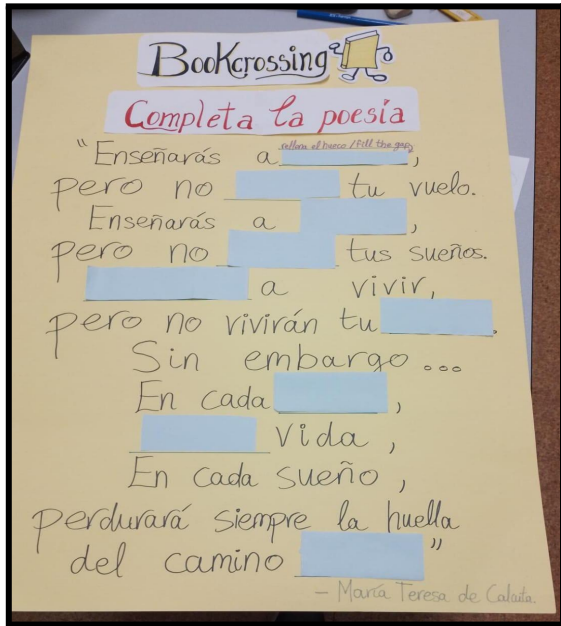 BooKcrossing
Completa la poesía
rellena el hueco / Fill the gap
"Enseñarás a ,
pero no tu vuelo.
Enseñarás a ,
pero no tus sueños.
a vivir,
pero no vivirán tu .
Sin embargo...
En cada ,
Vida ,
En cada sueño ,
perdurará siempre la huella
del camino "
- María Teresa de Calcuta.